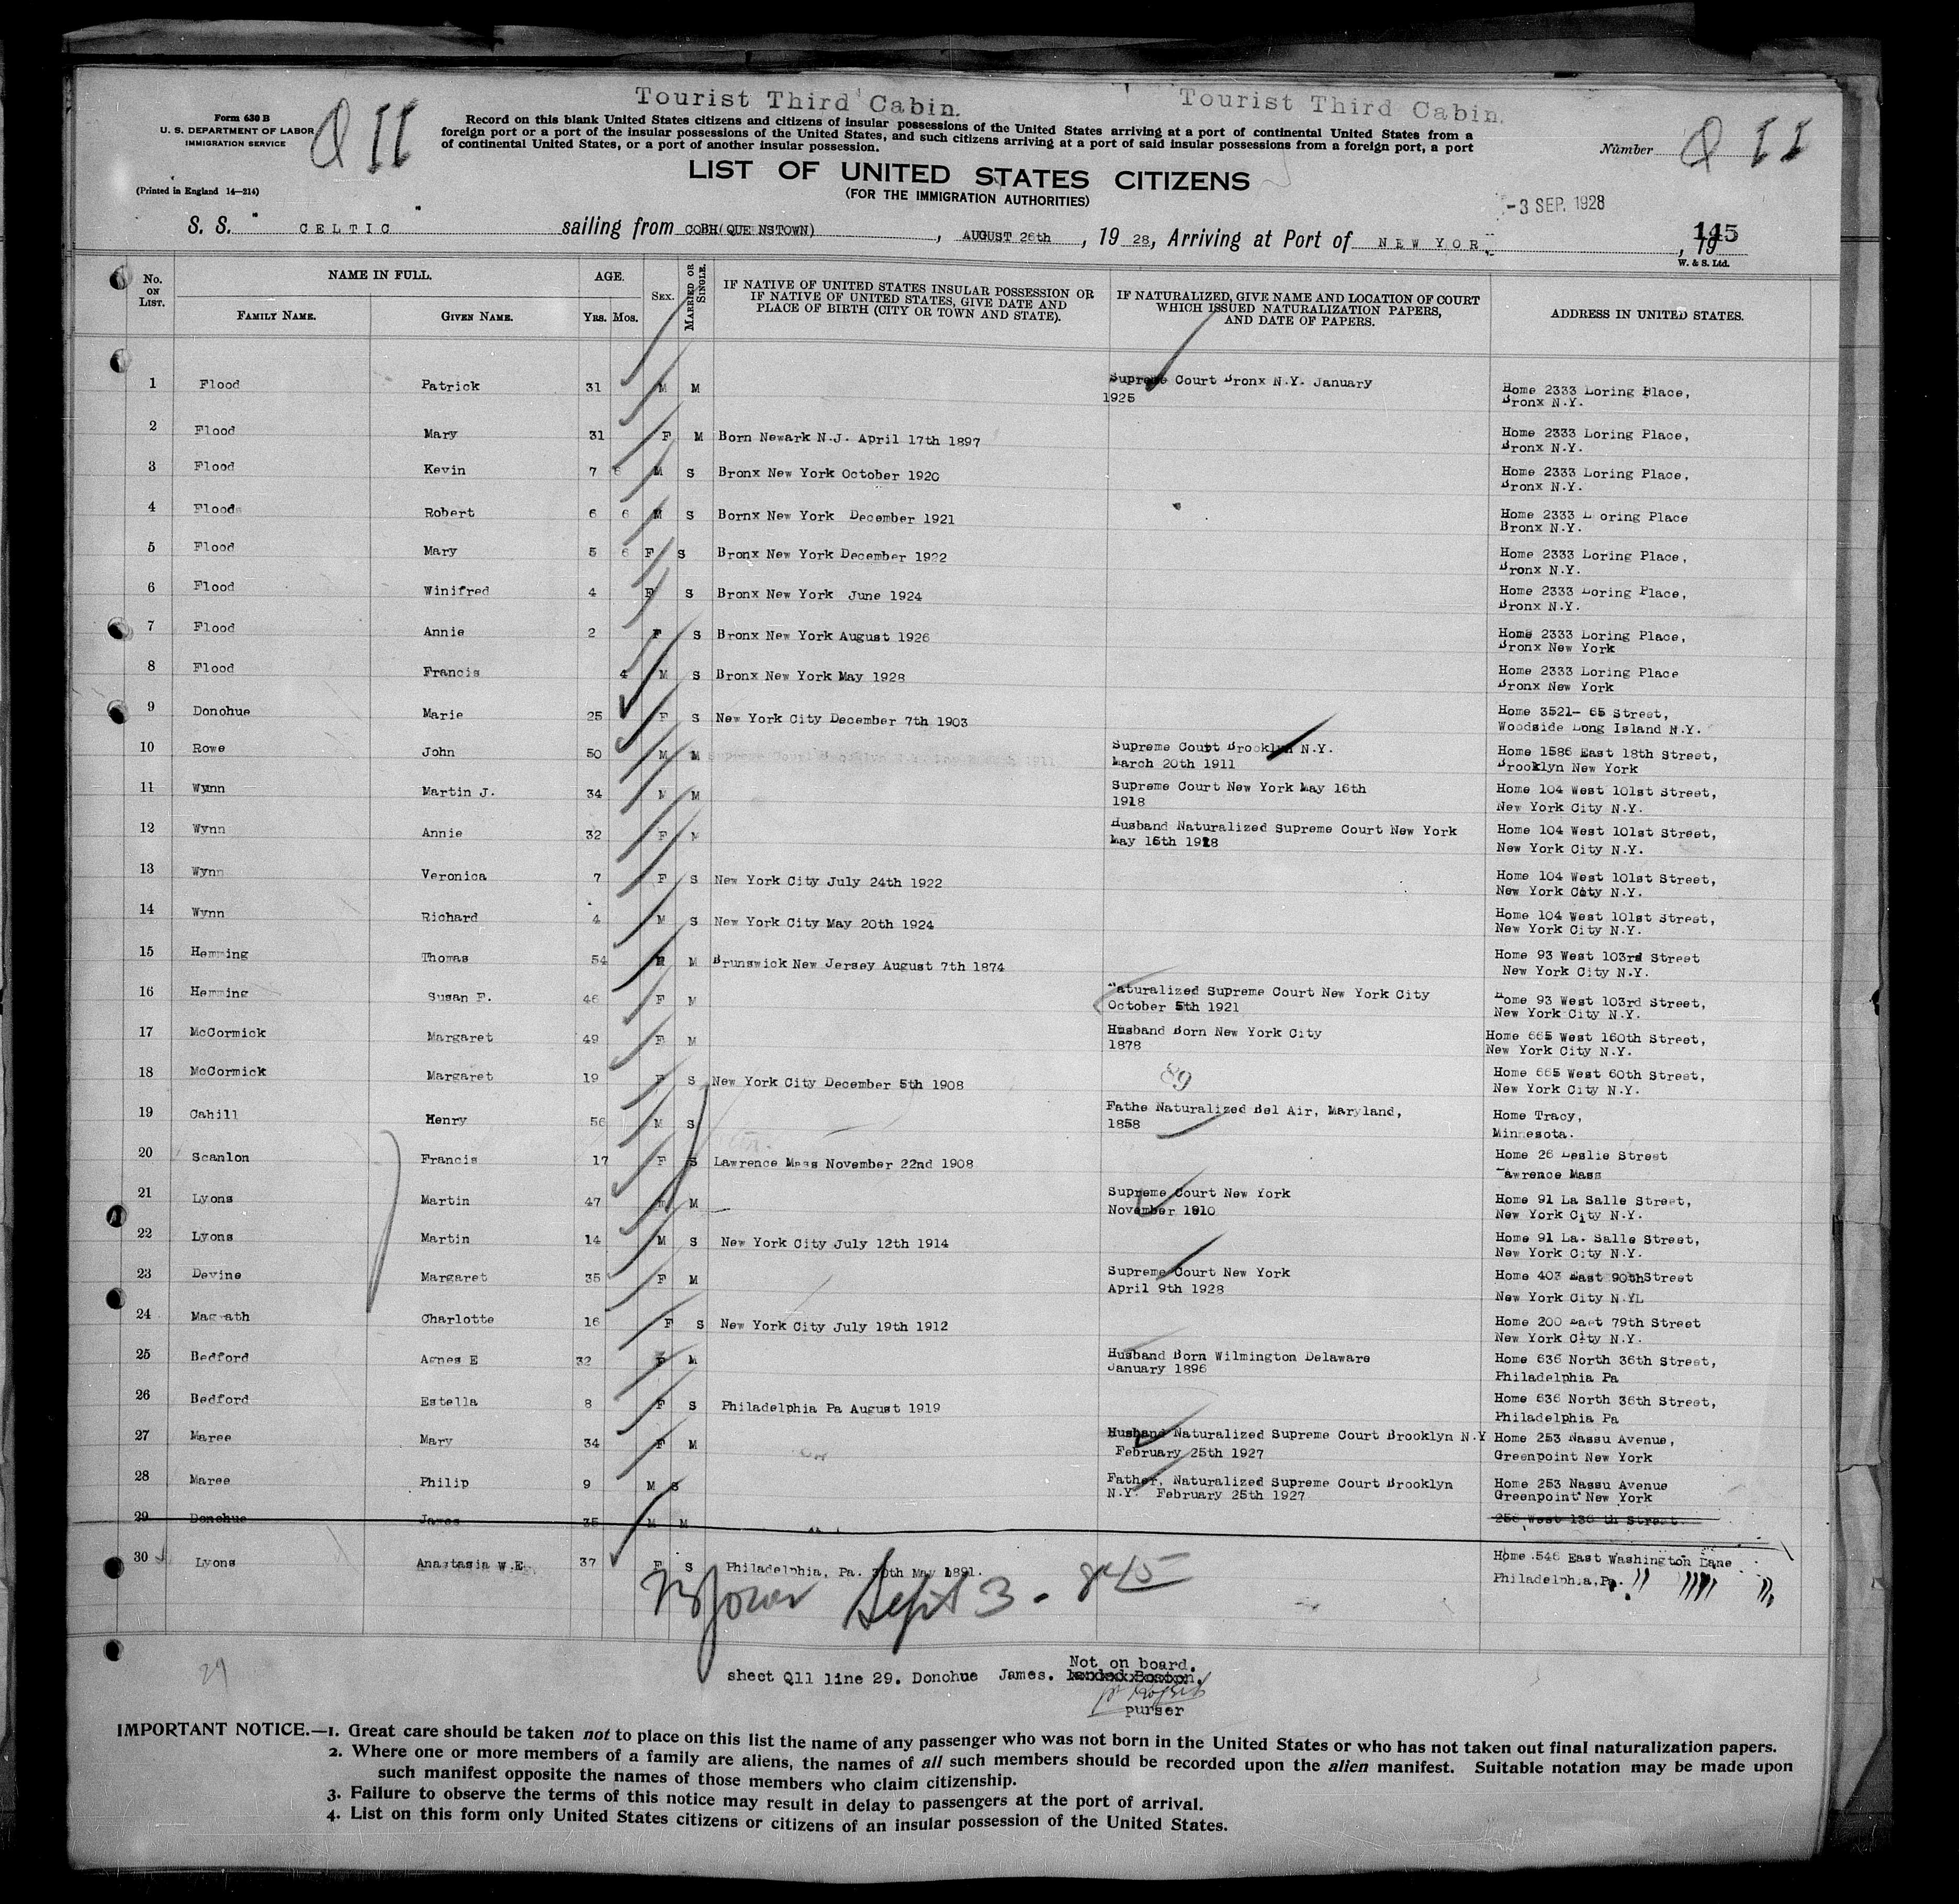 Tourist Third Cabin.
Tourist Third Cabin.
Form 630 B
U. S. DEPARTMENT OF LABOR
IMMIGRATION SERVICE
Q 11
Record on this blank United States citizens and citizens of insular possessions of the United States arriving at a port of continental United States from a
foreign port or a port of the insular possessions of the United States, and such citizens arriving at a port of said insular possessions from a foreign port, a port
of continental United States, or a port of another insular possession.
Number Q 11
(Printed in England 14—214)
LIST OF UNITED STATES CITIZENS
(FOR THE IMMIGRATION AUTHORITIES)
-3 SEP. 1928
S. S. " CELTIC " sailing from COBH(QUE NSTOWN), AUGUST 26th, 19 28, Arriving at Port of NEW YOR, 19
145
W. & S. Ltd.
No. ON LIST.
NAME IN FULL.
FAMILY NAME.
GIVEN NAME.
AGE.
YRS. MOS.
SEX.
MARRIED OR SINGLE.
IF NATIVE OF UNITED STATES INSULAR POSSESSION OR
IF NATIVE OF UNITED STATES, GIVE DATE AND
PLACE OF BIRTH (CITY OR TOWN AND STATE).
IF NATURALIZED, GIVE NAME AND LOCATION OF COURT
WHICH ISSUED NATURALIZATION PAPERS,
AND DATE OF PAPERS.
ADDRESS IN UNITED STATES.
1 Flood Patrick 31 M M Supreme Court Bronx N.Y. January
1925
Home 2333 Loring Place,
Bronx N.Y.
2 Flood Mary 31 F M Born Newark N.J. April 17th 1897 Home 2333 Loring Place,
Bronx N.Y.
3 Flood Kevin 7 6 M S Bronx New York October 1920 Home 2333 Loring Place,
Bronx N.Y.
4 Floods Robert 6 6 M S Bornx New York December 1921 Home 2333 L oring Place
Bronx N.Y.
5 Flood Mary 5 6 F S Bronx New York December 1922 Home 2333 Loring Place,
Bronx N.Y.
6 Flood Winifred 4 F S Bronx New York June 1924 Home 2333 Loring Place,
Bronx N.Y.
7 Flood Annie 2 F S Bronx New York August 1926 Home 2333 Loring Place,
Bronx New York
8 Flood Francis 4 M S Bronx New York May 1928 Home 2333 Loring Place
Bronx New York
9 Donohue Marie 25 F S New York City December 7th 1903 Home 3521- 65 Street,
Woodside Long Island N.Y.
10 Rowe John 50 M M Supreme Court Brooklyn N.Y. Home 1586 East 18th Street,
March 20th 1911 Brooklyn New York
11 Wynn Martin J. 34 M M Supreme Court New York May 16th Home 104 West 101st Street,
1918 New York City N.Y.
12 Wynn Annie 32 F M Husband Naturalized Supreme Court New York Home 104 West 101st Street,
May 16th 1918 New York City N.Y.
13 Wynn Veronica 7 F S New York City July 24th 1922 Home 104 West 101st Street,
New York City N.Y.
14 Wynn Richard 4 M S New York City May 20th 1924 Home 104 West 101st Street,
New York City N.Y.
15 Hemming Thomas 54 M M Brunswick New Jersey August 7th 1874 Home 93 West 103rd Street
New York City N.Y.
16 Hemming Susan F. 46 F M Naturalized Supreme Court New York City Home 93 West 103rd Street,
October 5th 1921 New York City N.Y.
17 McCormick Margaret 49 F M Husband Born New York City Home 665 West 160th Street,
1878 New York City N.Y.
18 McCormick Margaret 19 F S New York City December 5th 1908 89 Home 665 West 60th Street,
New York City N.Y.
19 Cahill Henry 56 M S Fathe Naturalized Bel Air, Maryland, Home Tracy,
1858 Minnesota.
20 Scanlon Francis 17 F S Lawrence Mass November 22nd 1908 Home 26 Leslie Street
Lawrence Mass
21 Lyons Martin 47 M M Supreme Court New York Home 91 La Salle Street,
November 1910 New York City N.Y.
22 Lyons Martin 14 M S New York City July 12th 1914 Home 91 La. Salle Street,
New York City N.Y.
23 Devine Margaret 35 F M Supreme Court New York Home 403 East 90thStreet
April 9th 1928 New York City N.YL
24 Mag ath Charlotte 16 F S New York City July 19th 1912 Home 200 East 79th Street
New York City N.Y.
25 Bedford Agnes E 32 F M Husband Born Wilmington Delaware Home 636 North 36th Street,
January 1896 Philadelphia Pa
26 Bedford Estella 8 F S Philadelphia Pa August 1919 Home 636 North 36th Street,
Philadelphia Pa
27 Maree Mary 34 F M Husband Naturalized Supreme Court Brooklyn N.Y Home 253 Nassu Avenue,
February 25th 1927 Greenpoint New York
28 Maree Philip 9 M S Father, Naturalized Supreme Court Brooklyn Home 253 Nassu Avenue
N.Y. February 25th 1927 Greenpoint New York
29 Donohue James 35 M M 256 West 136 th Street.
30 Lyons Anastasia W.E. 37 F S Philadelphia, Pa. 30th May 1891. Home 546 East Washington Lane
Philadelphia,Pa.
Sept 3 - 845
29
Not on board.
sheet Q11 line 29. Donohue James. landed Boston.
purser
IMPORTANT NOTICE.—1. Great care should be taken not to place on this list the name of any passenger who was not born in the United States or who has not taken out final naturalization papers.
2. Where one or more members of a family are aliens, the names of all such members should be recorded upon the alien manifest. Suitable notation may be made upon
such manifest opposite the names of those members who claim citizenship.
3. Failure to observe the terms of this notice may result in delay to passengers at the port of arrival.
4. List on this form only United States citizens or citizens of an insular possession of the United States.